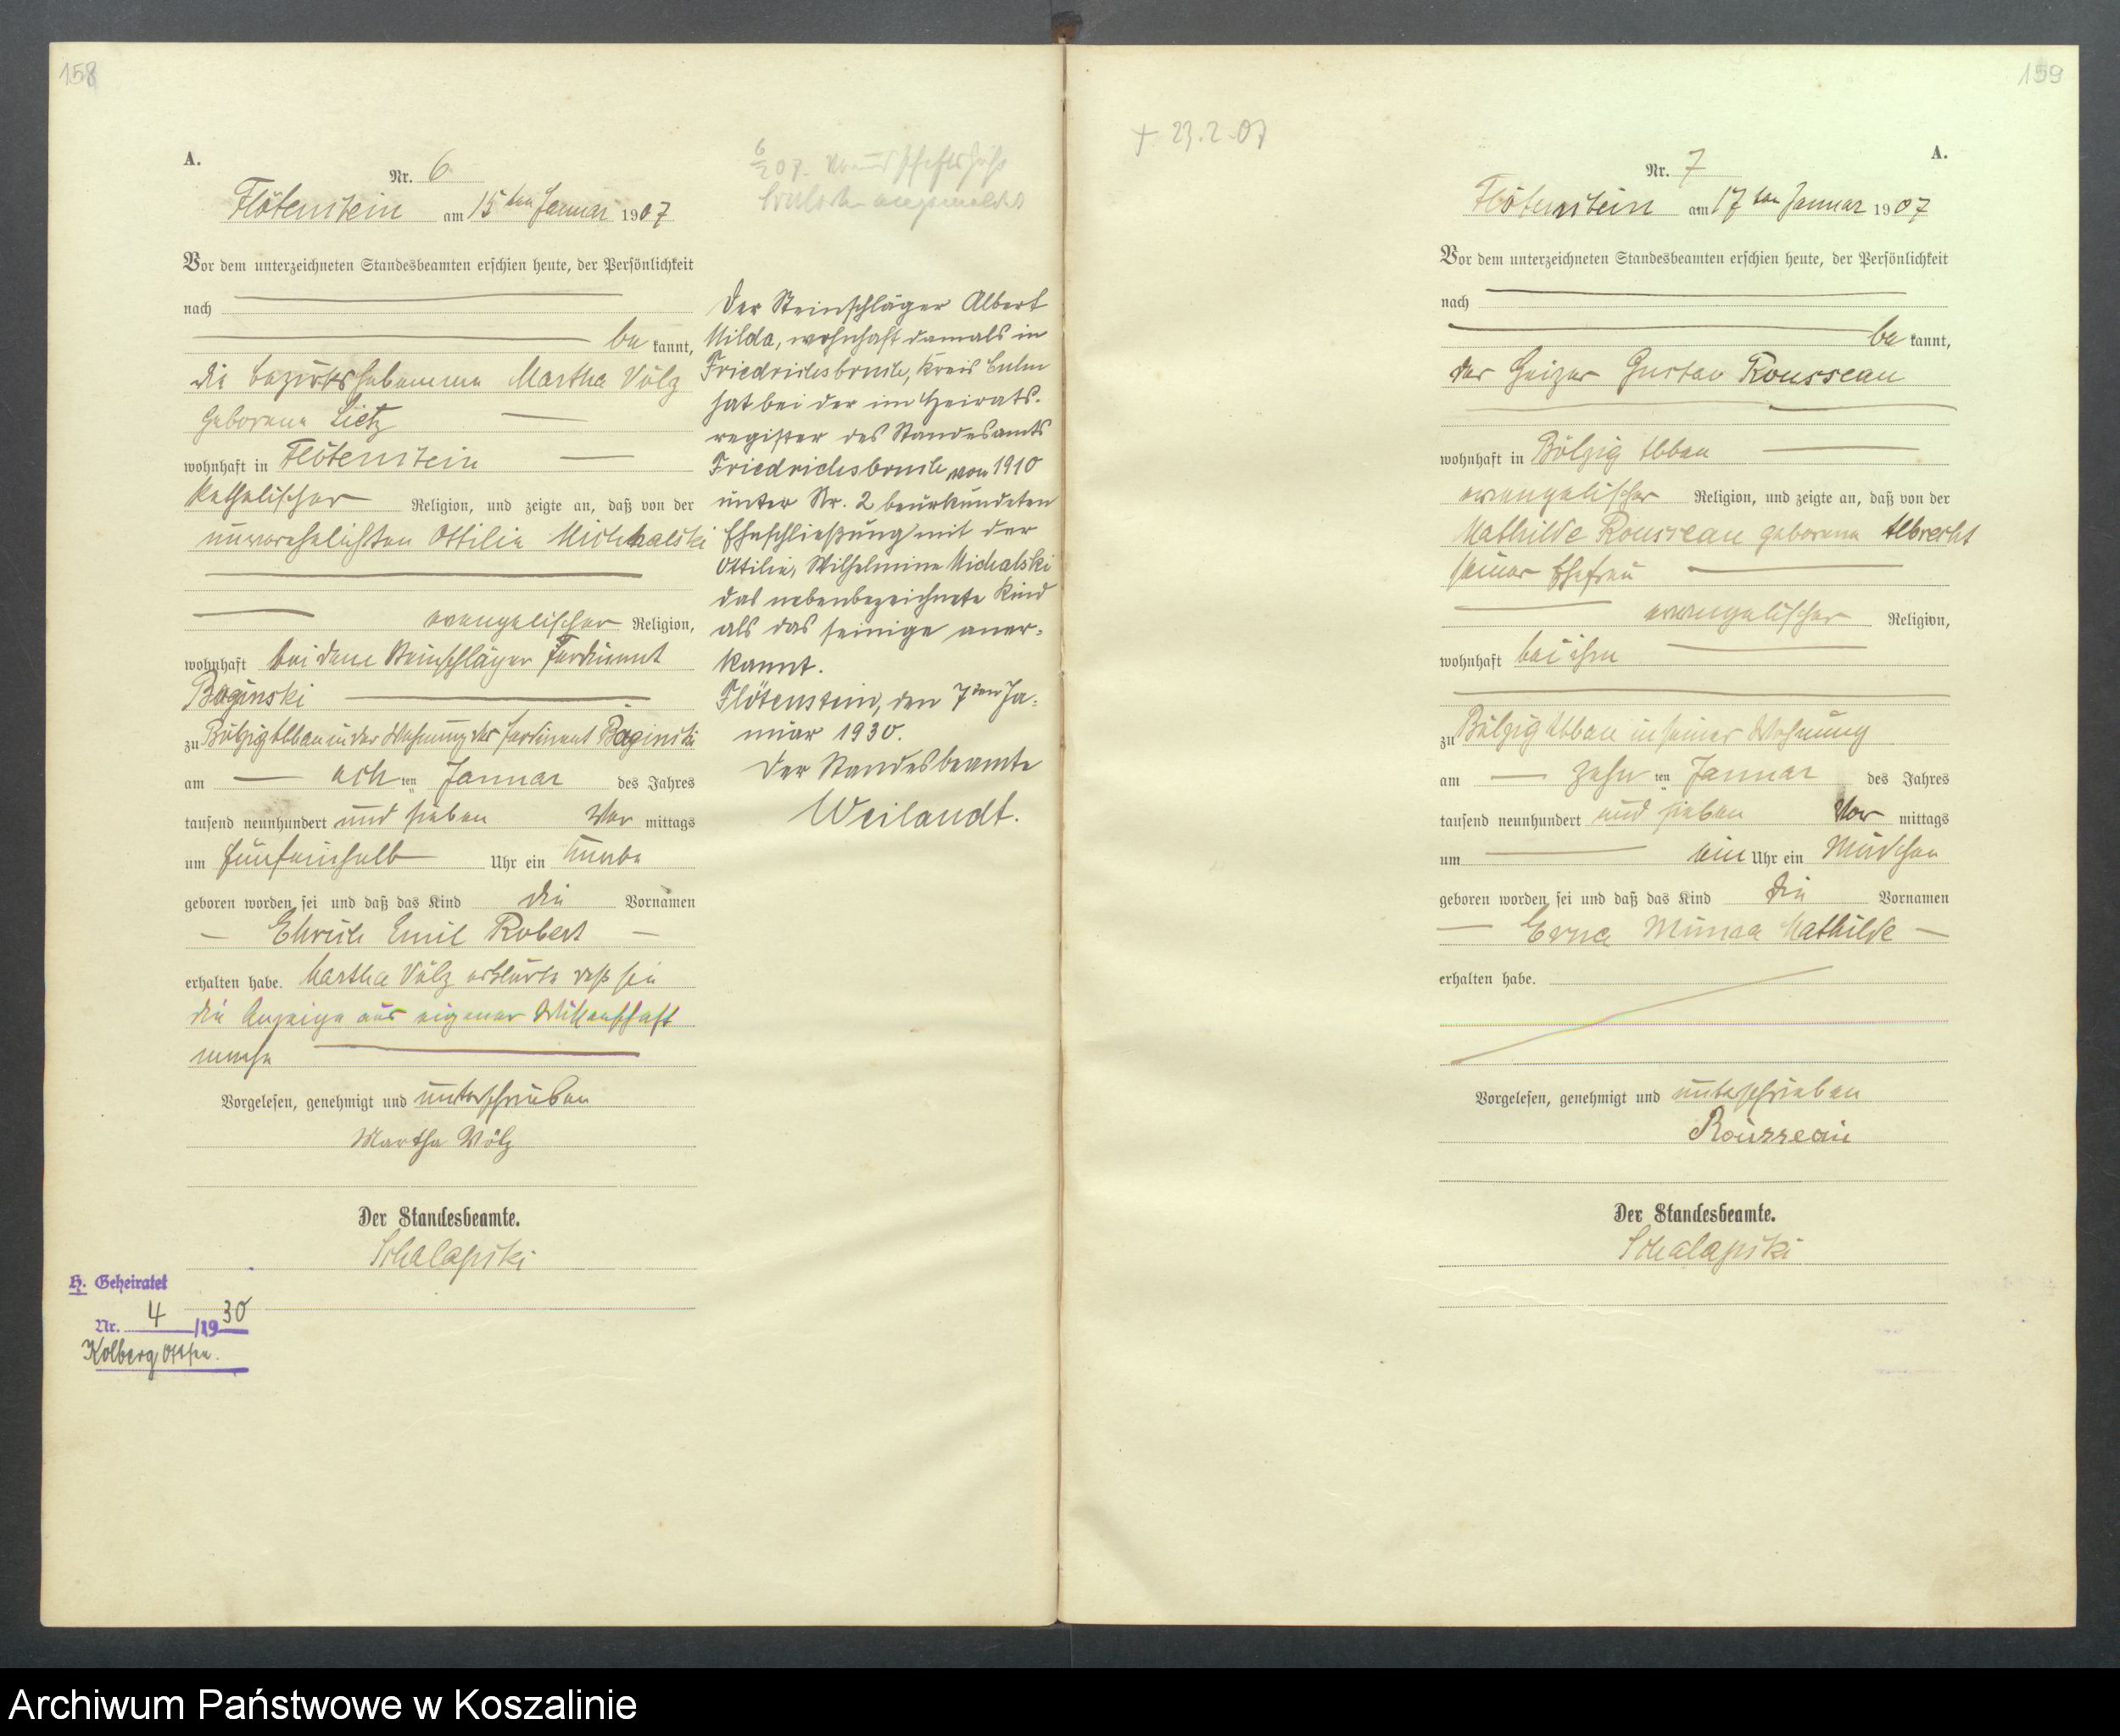 158
A.
Nr. 6
Flötenstein am 15ten Januar 1907
Vor dem unterzeichneten Standesbeamten erschien heute, der Persönlichkeit
nach
be kannt,
die Bezirkshebamme Martha Völz
geborene Lietz
wohnhaft in Flötenstein
katholischer Religion, und zeigte an, daß von der
unverehelichten Ottilie Michhalski
evangelischer Religion,
wohnhaft bei dem Steinschläger Ferdinant
Baginski
zu Bölzig Abbau in der Wohnung des Ferdinant Baginski
am ach ten Januar des Jahres
tausend neunhundert und sieben Vor mittags
um fünfeinhalb Uhr ein Knabe
geboren worden sei und daß das Kind die Vornamen
Ehrich Emil Robert
erhalten habe. Martha Völz erklärte daß sie
die Anzeige aus eigener Wissenschaft
mache
Vorgelesen, genehmigt und unterschrieben
Martha Völz
Der Standesbeamte.
Schalapski
H. Geheiratet
Nr. 4 /1930
Kolberg Ostsee.
6/2 07.
Der Steinschläger Albert
Milda, wohnhaft damals in
Friedrichsbruch, Kreis Culm
hat bei der im Heirats-
register des Standesamts
Friedrichsbruch von 1910
unter Nr. 2 beurkundeten
Eheschließung mit der
Ottilie, Wilhelmine Michalski
das nebenbezeichnete Kind
als das seinige aner-
kannt.
Flötenstein, den 7ten Ja-
nuar 1930.
Der Standesbeamte
Weilandt.
159
+ 23.2.07
A.
Nr. 7
Flötenstein am 17ten Januar 1907
Vor dem unterzeichneten Standesbeamten erschien heute, der Persönlichkeit
nach
be kannt,
der Heizer Gustav Rousseau
wohnhaft in Bölzig Abbau
evangelischer Religion, und zeigte an, daß von der
Mathilde Rousseau geborene Albrecht
seiner Ehefrau
evangelischer Religion,
wohnhaft bei ihm
zu Bölzig Abbau in seiner Wohnung
am zehn ten Januar des Jahres
tausend neunhundert und sieben Vor mittags
um ein Uhr ein Mädchen
geboren worden sei und daß das Kind die Vornamen
Erna Minna Mathilde
erhalten habe.
Vorgelesen, genehmigt und unterschrieben
Rousseau
Der Standesbeamte.
Schalapski
Archiwum Państwowe w Koszalinie